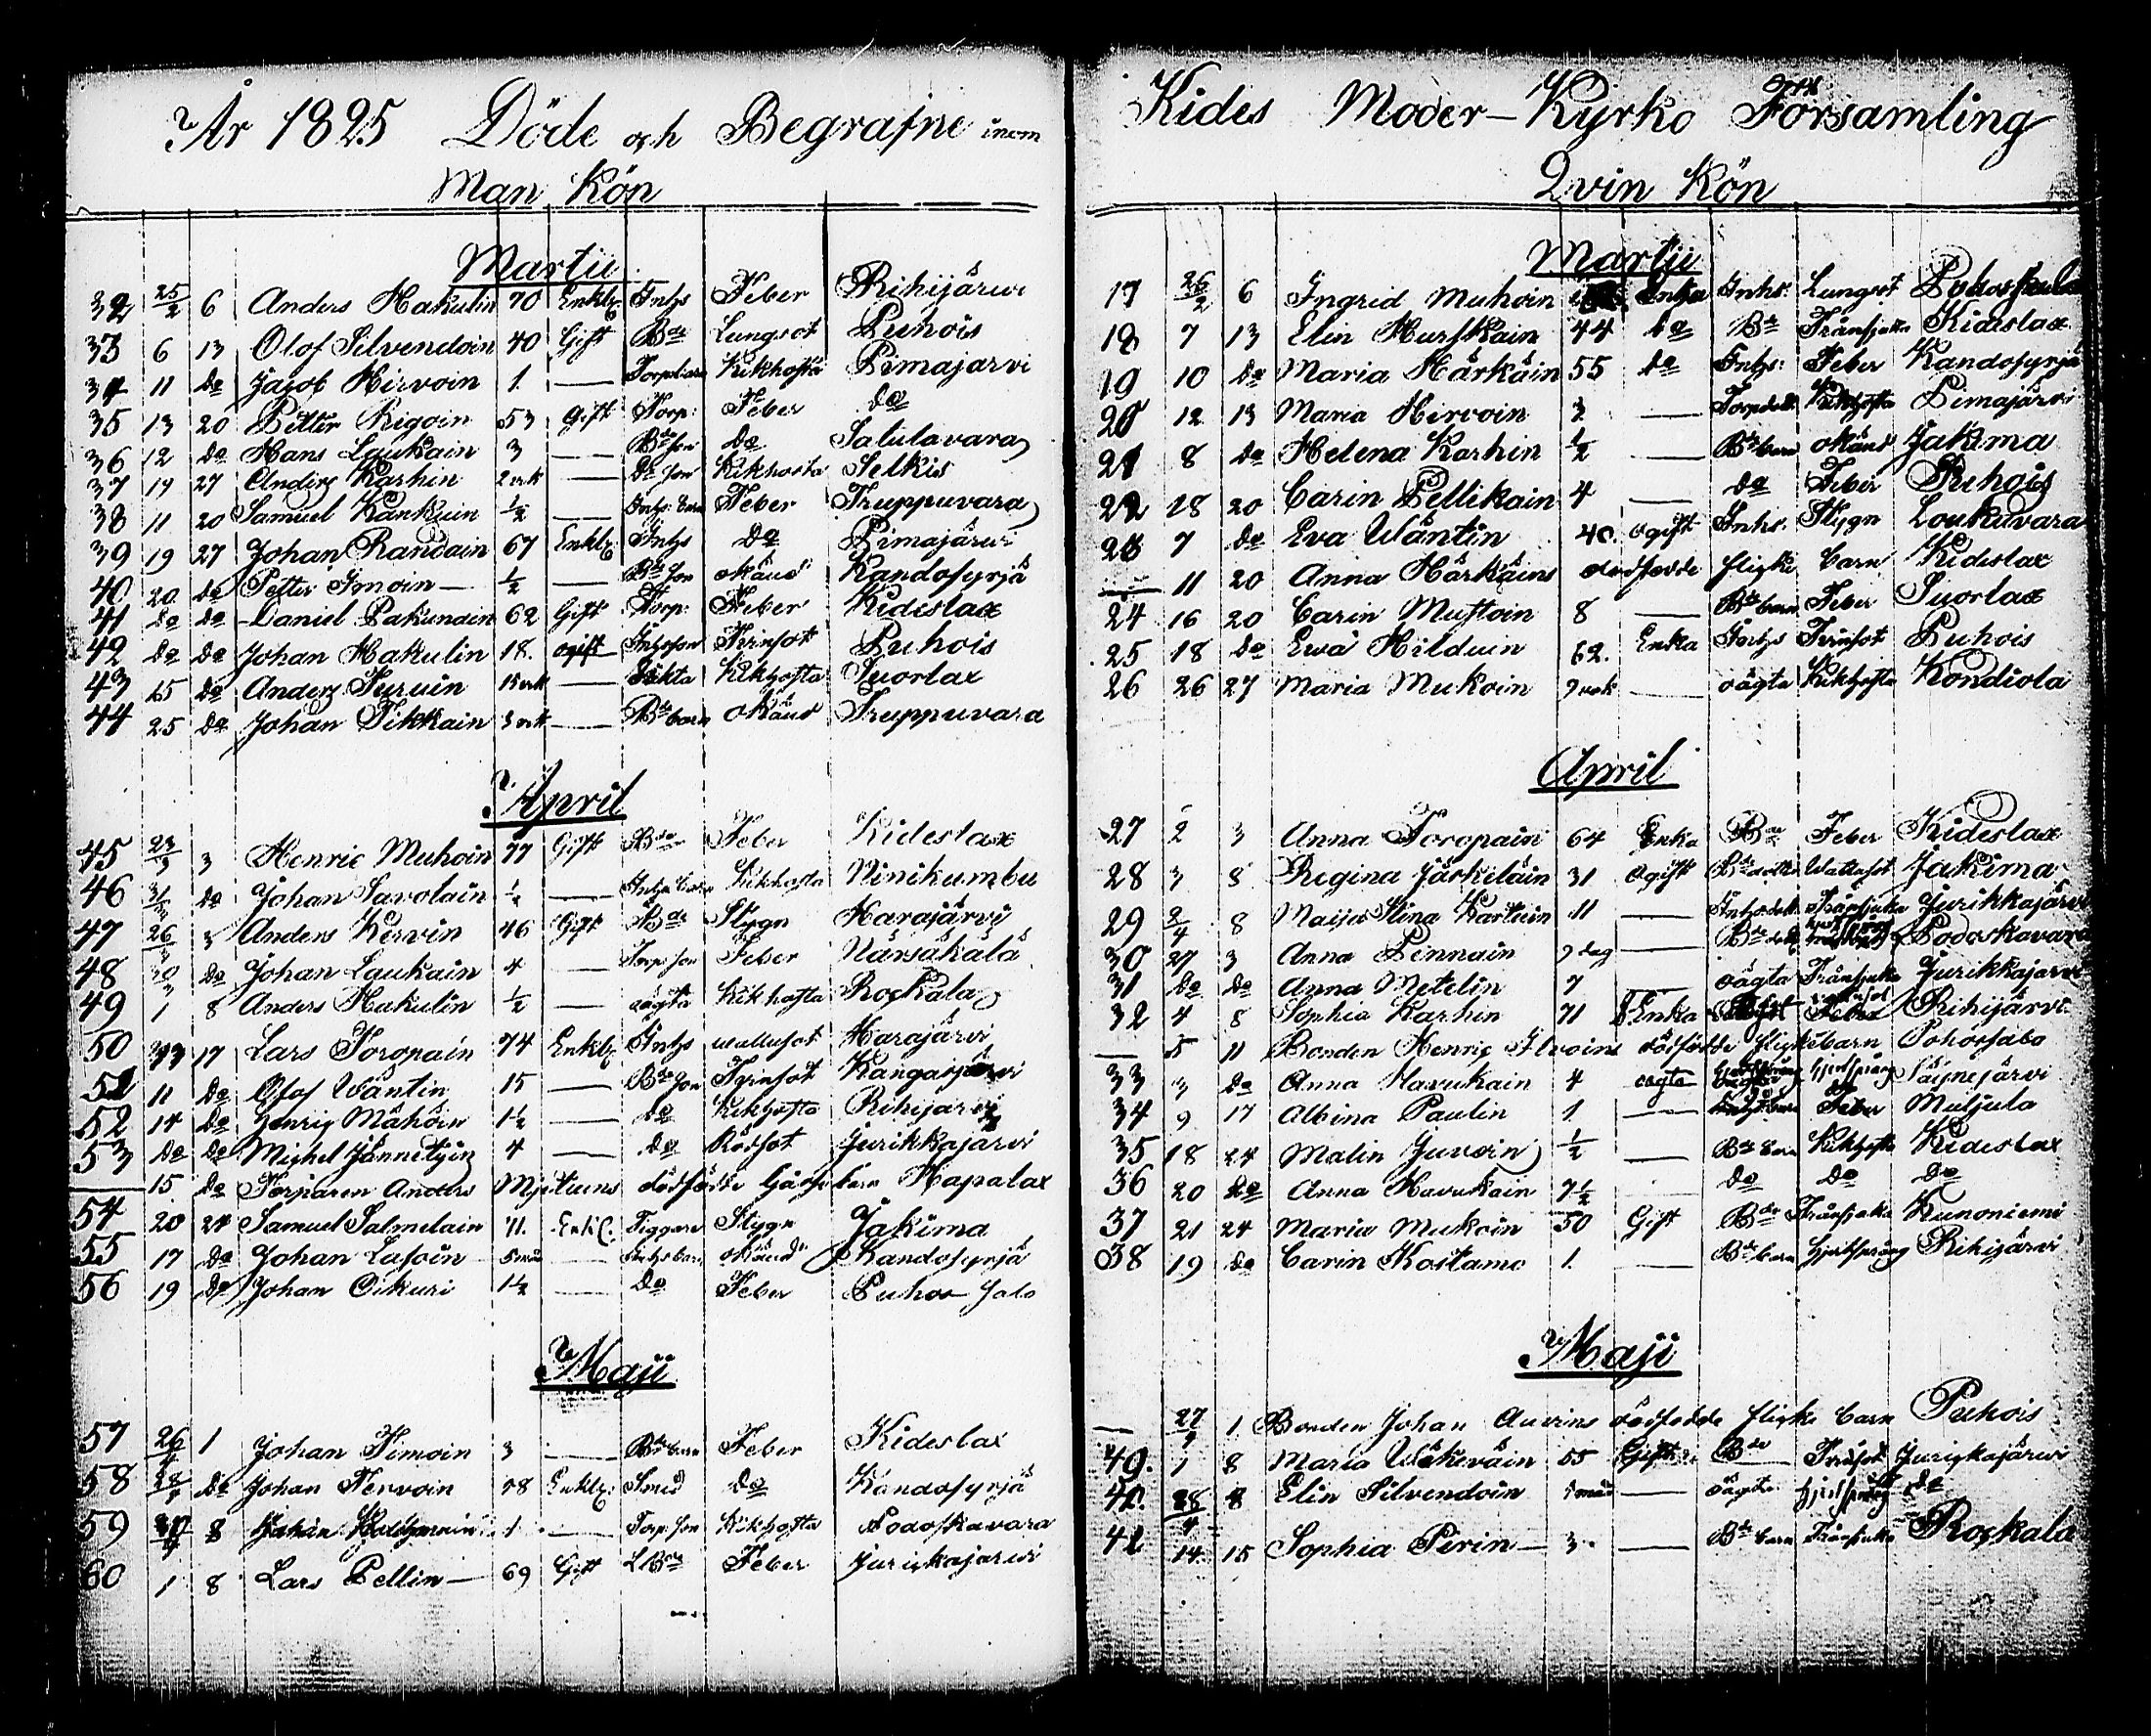 År 1825 Döde och Begrafne inom
Man Kön
Martii
32 25/2 6 Anders Hakulin 70 Enkl: Inhys Feber Rihijärwi
33 6 13 Olof Silvendoin 40 Gift Bde Lungsot Puhois
34 11 do Jacob Hirvoin 1 — Kikhosta Pimajarvi
35 13 20 Petter Rigoin 53 Gift Torp: Feber do
36 12 do Hans Laukain 3 — Bde son do Satulavara
37 17 27 Anders Karhin 2 vek — do son Kikhosta Selkis
38 11 20 Samuel Kankuin ½ — Inhys barn Feber Truppuvara
39 19 27 Johan Randain 67 Enkl: Inhys do Pimajärwi
40 20 do Petter Imoin — ½ — Bde son okänd Kandosyrjä
41 do do Daniel Pakunain 62 Gift Torp: Feber Kideslax
42 do do Johan Hakulin 18. ogift Inhysson Tvinsot Puhois
43 15 do Anders Turuin — oäkta Kikhosta Suorlax
44 25 do Johan Tikkain 3 vek — Bde barn okänd Truppuvara
April
45 23/3 3 Henric Muhoin 77 Gift Bde Feber Kideslax
46 31/3 do Johan Savolain ½ — Inhys barn Kikhosta Ninikumbu
47 26/3 3 Anders Kervin 46 Gift Bde Stygn Harajärvi
48 30/3 do Johan Laukain 4 — Torp: son Feber Närsäkälä
49 1 8 Anders Hakulin ½ — oägta Kikhosta Rockala
50 17 Lars Toropain 74 Enkl: Inhys wattusot Harajärvi
51 11 do Olof Wäntin 15 — Bde son Tvinsot Kangasjärvi
52 14 do Henrig Mähöin 1½ — do Kikhosta Rihijarvi
53 do do Michel Jännetyin 4 — do Rödsot Jurikkajarvi
— 15 do Torparen Anders Mjetiuns dödfödde Gosse barn Hapalax
54 20 24 Samuel Salmelain 71. Enkl: Tiggare Stygn Jakima
55 17 do Johan Lasoin 5 mån — Inhys barn okänd Kandosyrjä
56 19 do Johan Oikuri 1½ — do Feber Puhos Salo
Maji
57 26/4 1 Johan Timoin 3 — Bde barn Feber Kideslax
58 28/4 do Johan Tervoin 78 Enkl: Smed do Kandosyrjä
59 8 Johan 1 — Torp: son Kikhosta Podoskavara
60 1 8 Lars Pellin — 69 Gift Feber Jurickajarwi
Kides Moder-Kyrko Församling
Qvin Kön
Martii
17 26/2 6 Ingrid Muhoin Enka Inhs: Lungsot
18 7 13 Elin Hurskain 44 do Bde Trånsjuka Kideslax
19 10 do Maria Härkäin 55 do Inhys: Feber Kandosyrjä
20 12 13 Maria Hirvoin ½ — Kikhosta Pimajärvi
21 8 do Helena Karhin ½ — Bde barn okänd Jakima
22 18 20 Carin Pellikain 4 — do Feber Puhois
23 7 do Eva Wäntin 40. ogift Inhs. Stygn Loukuvara
— 11 20 Anna Härkäins dödfödde flicke barn Kideslax
24 16 20 Carin Mustoin 8 — Bde barn Feber Suorlax
25 18 do Ewa Hilduin 62. Enka Inhys Tvinsot Puhois
26 26 27 Maria Mukoin 7 vek — oägta Kikhosta Kondiola
April
27 2 3 Anna Toropain 64 Enka Bde Feber Kideslax
28 3 8 Regina Järkeläin 31 ogift Bde dotter Wattusot Jakima
29 2/4 8 Maija Stina Kartuin 11 — Trånsjuka Jurikkajärvi
30 27 3 Anna Pinnain 7 dag — Podoskavara
31 do do Anna Metelin 7 — oägta Trånsjuka Jurikkajarvi
32 4 8 Sophia Karhin 71 Enka Rihijärvi
— 5 11 Bonden Henrig Ilvoins dödfödde flickebarn Pohorsalo
33 3 do Anna Havukain 4 oägta hjertsprång
34 9 17 Albina Paulin 1 — Feber Muljula
35 18 24 Malin Juvoin ½ — Bde barn Kikhosta Kideslax
36 20 do Anna Havukain 7½ do do do
37 21 24 Maria Mukoin 50 Gift Bde Trånsjuka Kunoniemi
38 19 do Carin Kostamo 1. — Bde barn hjertsprång Rihijärvi
Maji
— 27/4 1 Bonden Johan Auvins dödfödde flicke barn Puhois
1 8 Maria Wäkeväin 55 Gift Bde Tvinsot Jurickajärwi
28/4 8 Elin Silvendoin 5 mån — oägta hjertsprång do
14 15 Sophia Pirin — 3. — Bde barn Trånsjuka Rockala